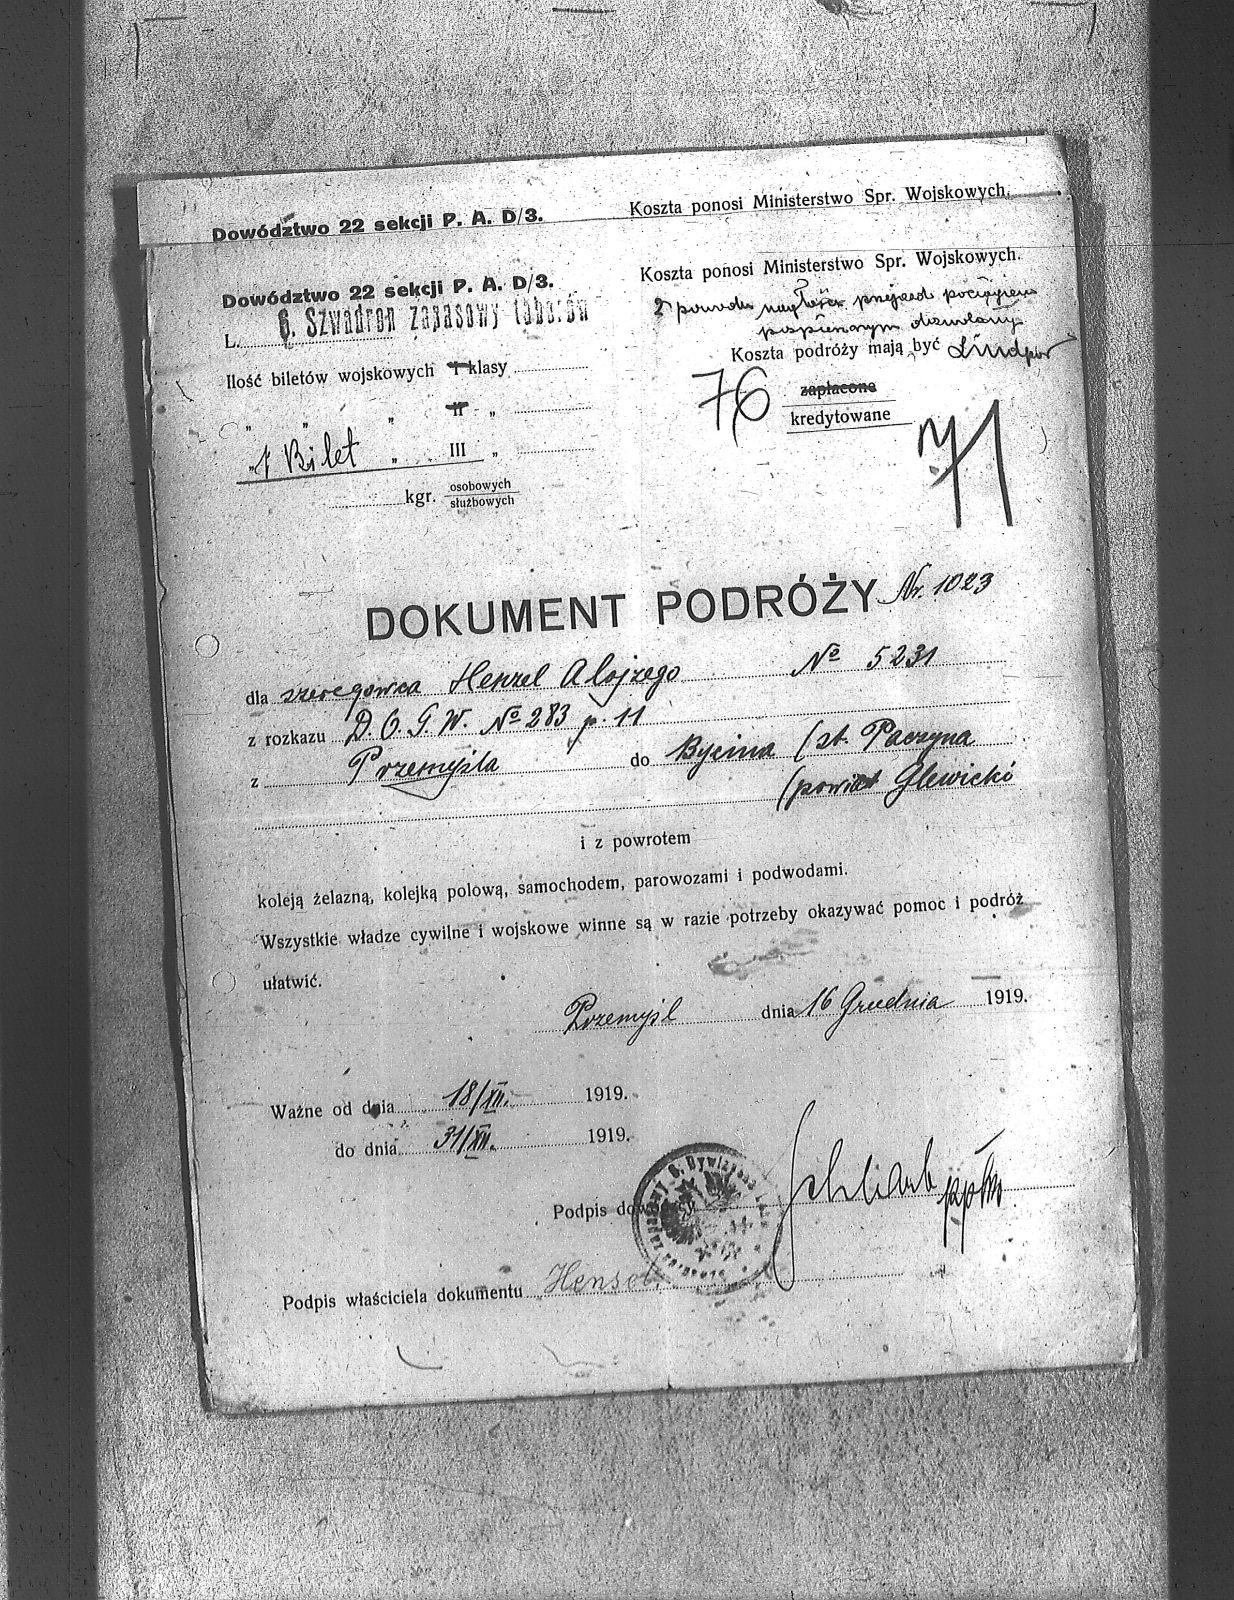 Dowództwo 22 sekcji P. A. D/3.
Koszta ponosi Ministerstwo Spr. Wojskowych.
Dowództwo 22 sekcji P. A. D/3.
Koszta ponosi Ministerstwo Spr. Wojskowych.
L. 6. Szwadron zapasowy taborów
Z powodu nagłości przejazd pociągiem
pospiesznym dozwolony
Ilość biletów wojskowych I klasy
Koszta podróży mają być
" " " II "
76
zapłacone
kredytowane
71
1 Bilet " III "
kgr. osobowych
służbowych
DOKUMENT PODRÓŻY Nr. 1023
dla szeregowca Henzel Alojzego № 5231
z rozkazu D.O.G.W. № 283 p. 11
z Przemyśla do Bycina (st. Paczyna
(powiat Glewicki
i z powrotem
koleją żelazną, kolejką polową, samochodem, parowozami i podwodami.
Wszystkie władze cywilne i wojskowe winne są w razie potrzeby okazywać pomoc i podróż
ułatwić.
Przemyśl dnia 16 Grudnia 1919.
Ważne od dnia 18/XII. 1919.
do dnia 31/XII. 1919.
Podpis dowódcy ppłk
Podpis właściciela dokumentu Hensel